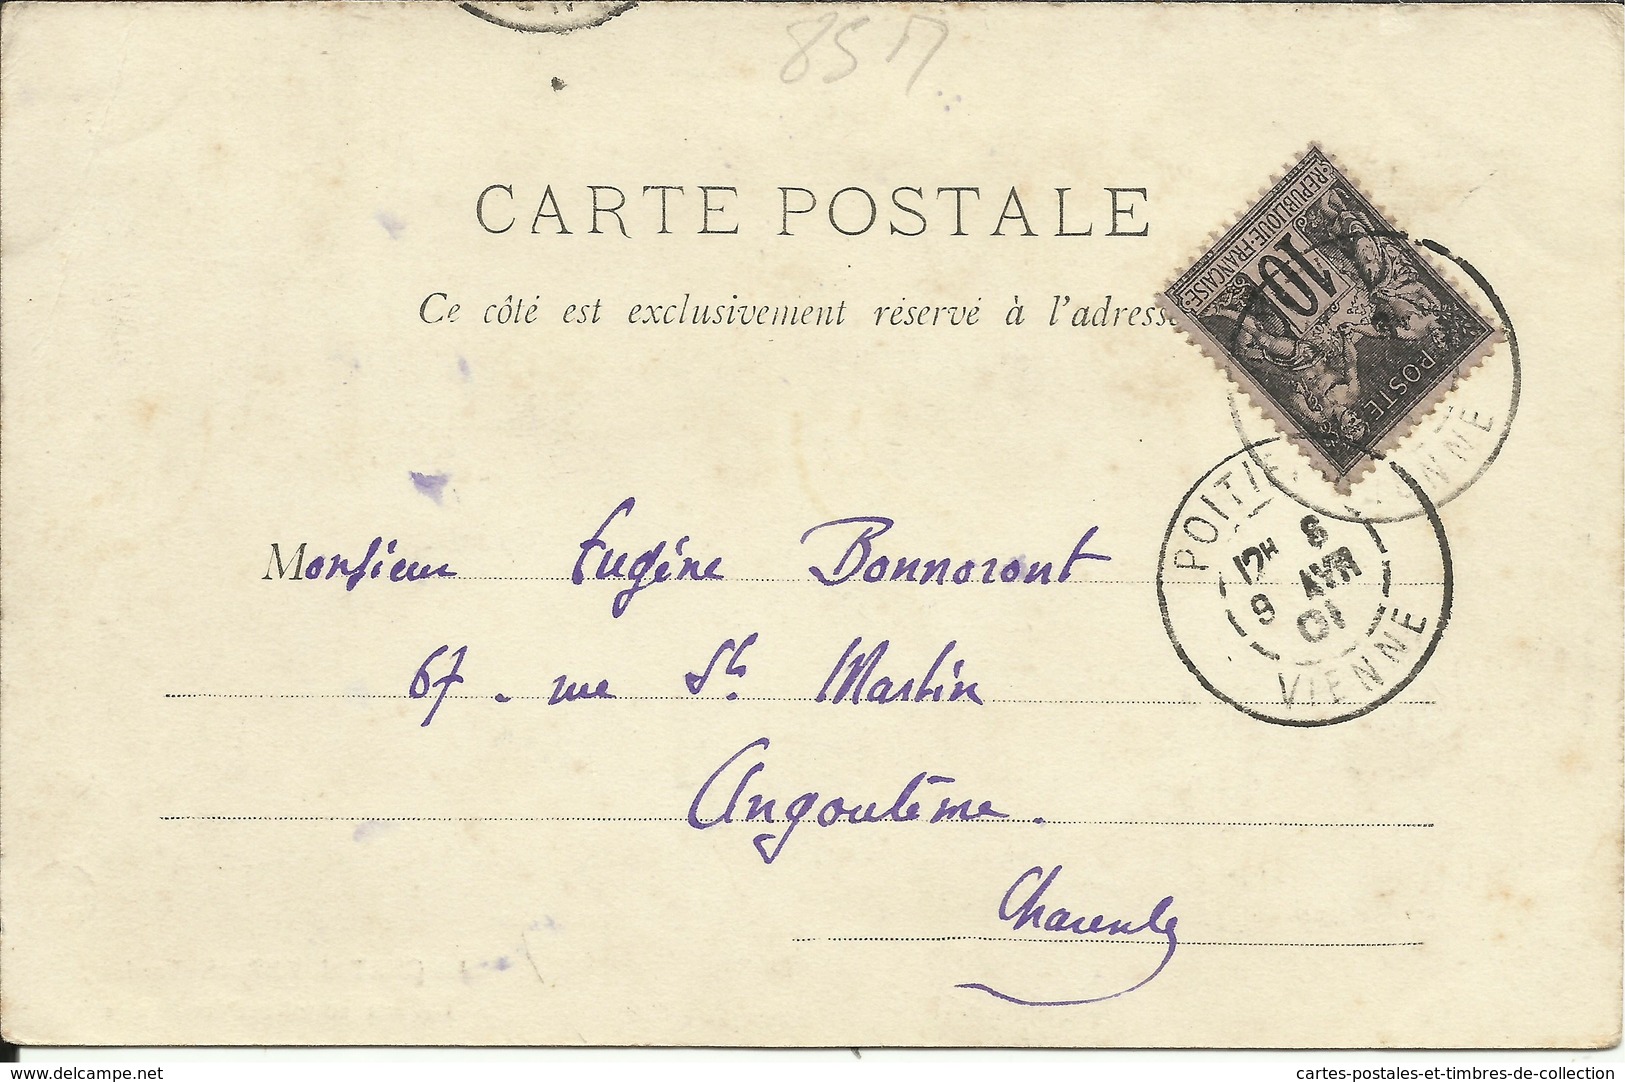 85
CARTE POSTALE
Ce côté est exclusivement réservé à l'adresse
REPUBLIQUE·FRANCAISE
10
POSTE
ENNE
POITIE
12H 8
9 AVR
01
VIENNE
Monsieur Eugène Bonnoront
67. rue St. Martin
Angoulême.
Charente
www.delcampe.net
cartes-postales-et-timbres-de-collection